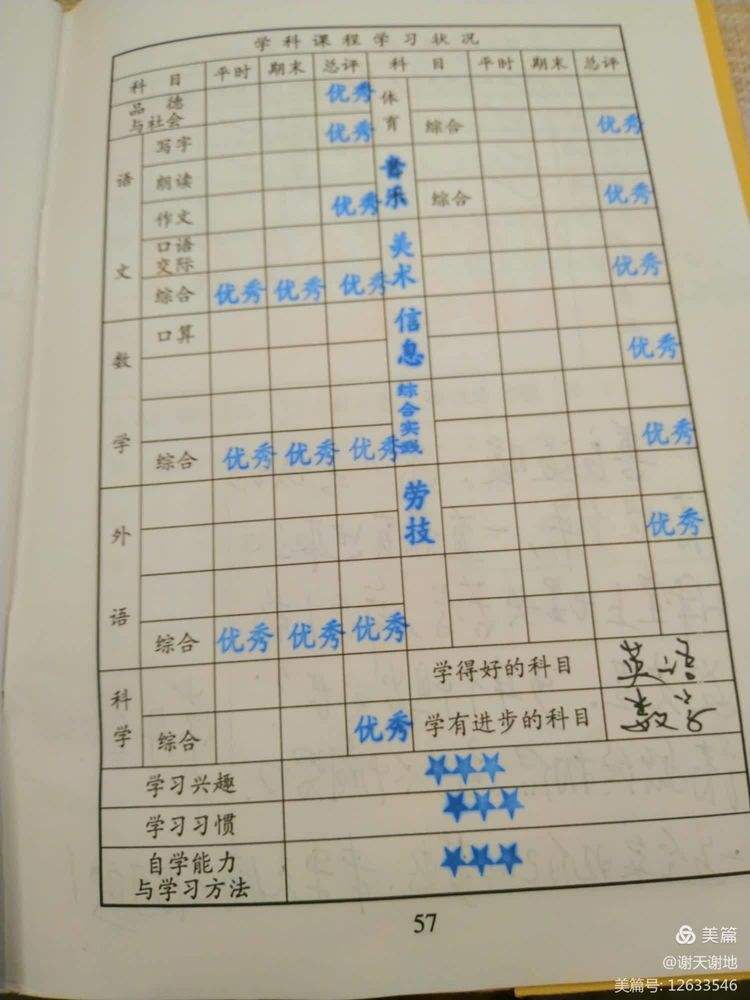 学科课程学习状况
科目 平时 期末 总评 科目 平时 期末 总评
品德与社会 优秀 体育
语文 写字 优秀 综合 优秀
朗读 音乐
作文 优秀 综合 优秀
口语交际 美术 优秀
综合 优秀 优秀 优秀
数学 口算 信息 优秀
综合实践
综合 优秀 优秀 优秀 优秀
外语 劳技 优秀
综合 优秀 优秀 优秀
科学 学得好的科目 英语
综合 优秀 学有进步的科目 数学
学习兴趣 ★★★
学习习惯 ★★★
自学能力与学习方法 ★★★
57
美篇
@谢天谢地
美篇号: 12633546